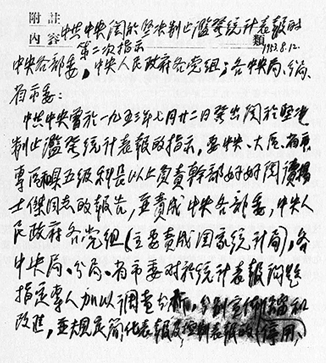 附註
內容
類
中共中央關於堅決制止濫發統計表報的
第二次指示
1953.8.12.
中央各部委,中央人民政府各党組;各中央局、分局、
省市委:
中共中央曾於一九五三年七月廿二日發出關於堅決
制止濫發統計表報的指示,要中央、大區、省市
專區和縣五級科長以上負責幹部好好閱讀楊
士傑同志的報告,並責成中央各部委,中央人
民政府各党組(主要責成国家統計局),各
中央局、分局、省市委對於統計表報詢題
指定專人加以調查分析,分别宣佈
改進,並規定簡化表報及
(停用、